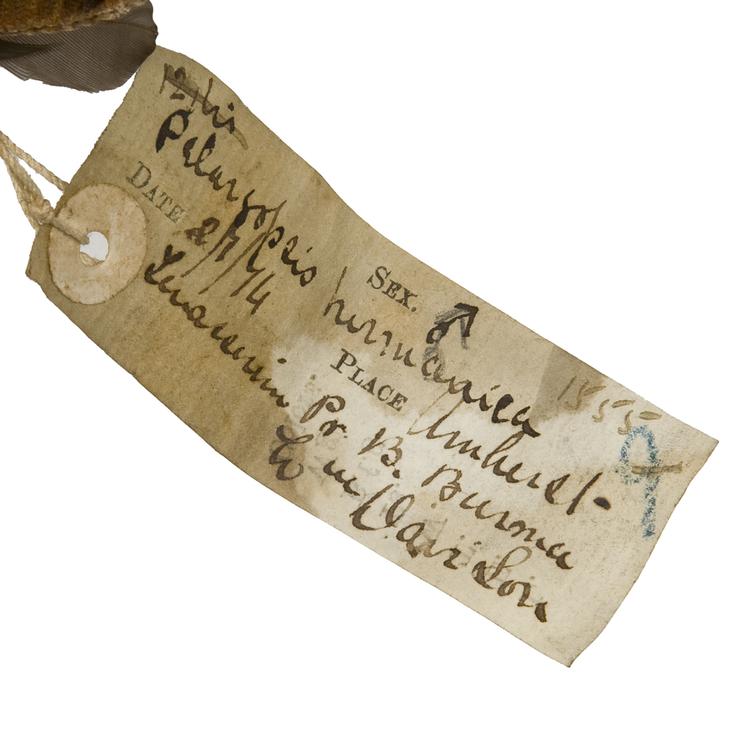 Pelargopsis burmanica
DATE 2/7/74 SEX. ♂ 1555
Tenasserim PLACE Amherst
Pr. B. Burma
W m Davison